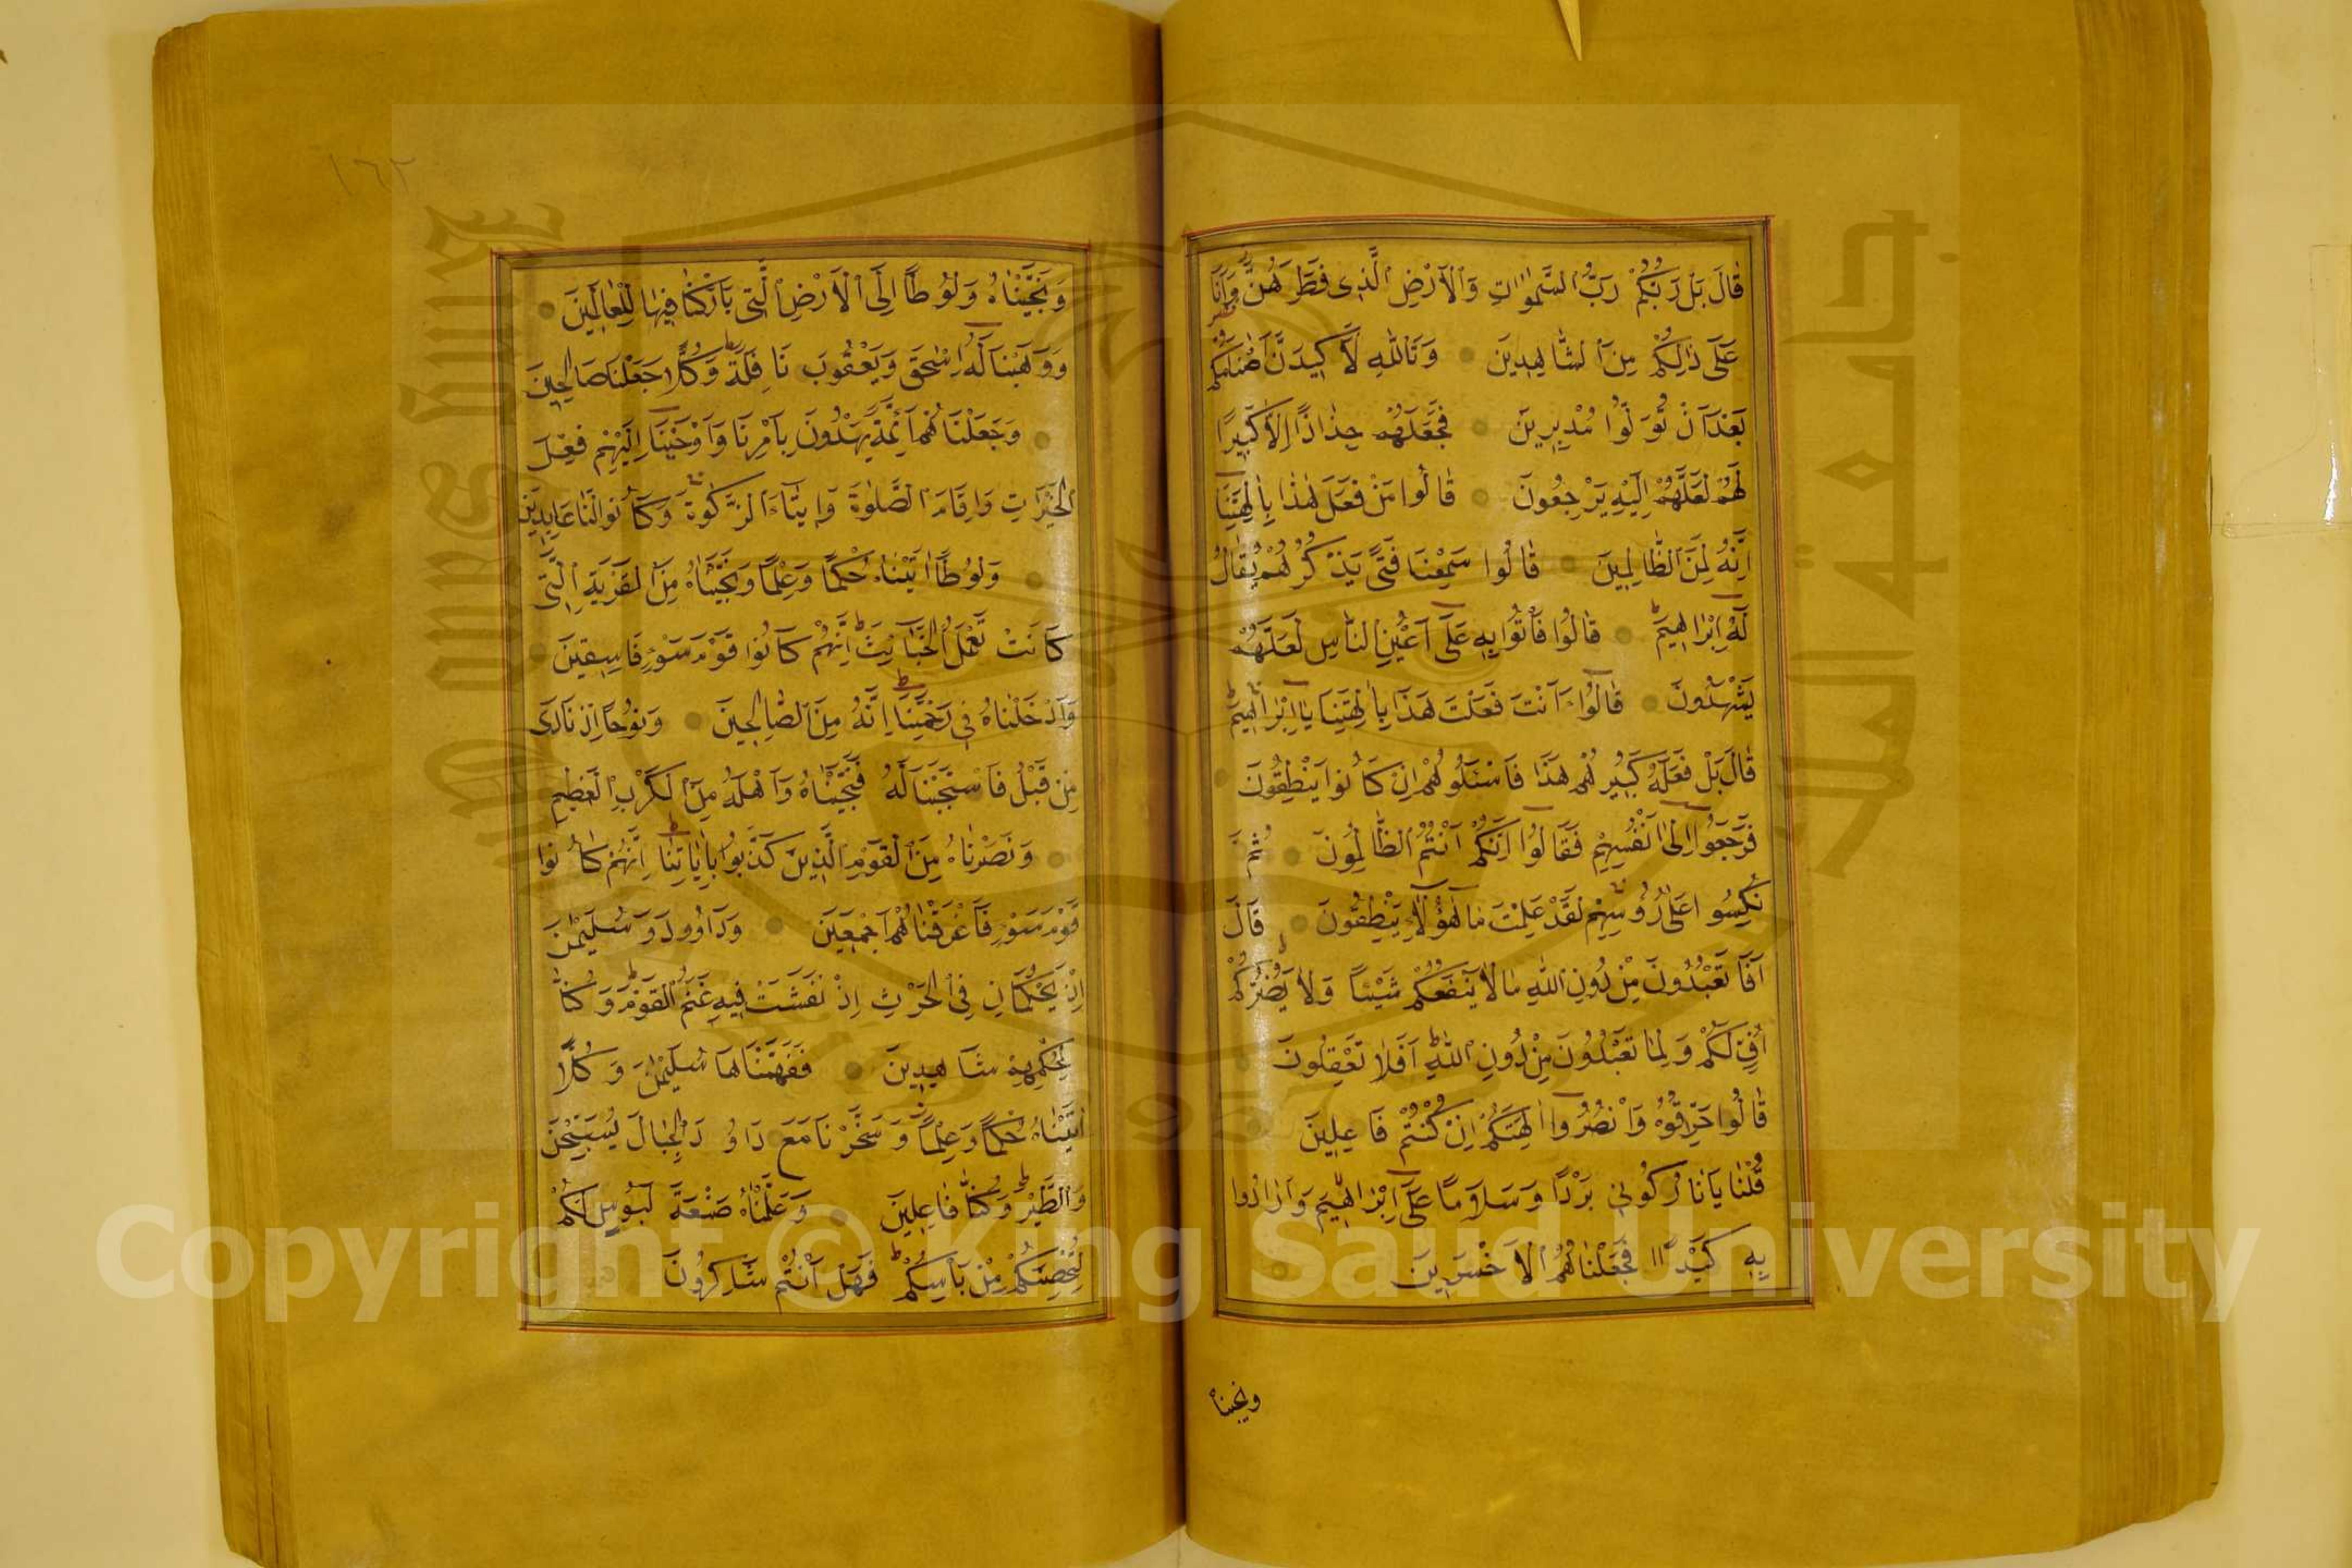 قَالَ بَلْ رَبُّكُمْ رَبُّ السَّمٰوَاتِ وَالْاَرْضِ الَّذِى فَطَرَهُنَّ وَاَنَا
عَلَى ذٰلِكُمْ مِنَ الشَّاهِدِينَ وَتَاللّٰهِ لَاَكِيدَنَّ اَصْنَامَكُمْ
بَعْدَ اَنْ تُوَلُّوا مُدْبِرِينَ فَجَعَلَهُمْ جُذَاذًا اِلَّا كَبِيرًا
لَهُمْ لَعَلَّهُمْ اِلَيْهِ يَرْجِعُونَ قَالُوا مَنْ فَعَلَ هٰذَا بِاٰلِهَتِنَا
اِنَّهُ لَمِنَ الظَّالِمِينَ قَالُوا سَمِعْنَا فَتًى يَذْكُرُهُمْ يُقَالُ
لَهُ اِبْرَاهِيمُ قَالُوا فَأْتُوا بِهِ عَلَى اَعْيُنِ النَّاسِ لَعَلَّهُمْ
يَشْهَدُونَ قَالُوا ءَاَنْتَ فَعَلْتَ هَذَا بِاٰلِهَتِنَا يَا اِبْرَاهِيمُ
قَالَ بَلْ فَعَلَهُ كَبِيرُهُمْ هَذَا فَاسْئَلُوهُمْ اِنْ كَانُوا يَنْطِقُونَ
فَرَجَعُوا اِلَى اَنْفُسِهِمْ فَقَالُوا اِنَّكُمْ اَنْتُمُ الظَّالِمُونَ ثُمَّ
نُكِسُوا عَلَى رُؤُسِهِمْ لَقَدْ عَلِمْتَ مَا هٰؤُلَاءِ يَنْطِقُونَ قَالَ
اَفَتَعْبُدُونَ مِنْ دُونِ اللّٰهِ مَا لَا يَنْفَعُكُمْ شَيْئًا وَلَا يَضُرُّكُمْ
اُفٍّ لَكُمْ وَلِمَا تَعْبُدُونَ مِنْ دُونِ اللّٰهِ اَفَلَا تَعْقِلُونَ
قَالُوا حَرِّقُوهُ وَانْصُرُوا اٰلِهَتَكُمْ اِنْ كُنْتُمْ فَاعِلِينَ
قُلْنَا يَا نَارُ كُونِى بَرْدًا وَسَلَامًا عَلَى اِبْرَاهِيمَ وَاَرَادُوا
بِهِ كَيْدًا فَجَعَلْنَاهُمُ الْاَخْسَرِينَ
ونجيناه
١٦٢
وَنَجَّيْنَاهُ وَلُوطًا اِلَى الْاَرْضِ الَّتِى بَارَكْنَا فِيهَا لِلْعَالَمِينَ
وَوَهَبْنَا لَهُ اِسْحٰقَ وَيَعْقُوبَ نَافِلَةً وَكُلًّا جَعَلْنَا صَالِحِينَ
وَجَعَلْنَاهُمْ اَئِمَّةً يَهْدُونَ بِاَمْرِنَا وَاَوْحَيْنَا اِلَيْهِمْ فِعْلَ
الْخَيْرَاتِ وَاِقَامَ الصَّلٰوةِ وَاِيتَاءَ الزَّكٰوةِ وَكَانُوا لَنَا عَابِدِينَ
وَلُوطًا اٰتَيْنَاهُ حُكْمًا وَعِلْمًا وَنَجَّيْنَاهُ مِنَ الْقَرْيَةِ الَّتِى
كَانَتْ تَعْمَلُ الْخَبَائِثَ اِنَّهُمْ كَانُوا قَوْمَ سَوْءٍ فَاسِقِينَ
وَاَدْخَلْنَاهُ فِى رَحْمَتِنَا اِنَّهُ مِنَ الصَّالِحِينَ وَنُوحًا اِذْ نَادَى
مِنْ قَبْلُ فَاسْتَجَبْنَا لَهُ فَنَجَّيْنَاهُ وَاَهْلَهُ مِنَ الْكَرْبِ الْعَظِيمِ
وَنَصَرْنَاهُ مِنَ الْقَوْمِ الَّذِينَ كَذَّبُوا بِاٰيَاتِنَا اِنَّهُمْ كَانُوا
قَوْمَ سَوْءٍ فَاَغْرَقْنَاهُمْ اَجْمَعِينَ وَدَاوُودَ وَسُلَيْمٰنَ
اِذْ يَحْكُمَانِ فِى الْحَرْثِ اِذْ نَفَشَتْ فِيهِ غَنَمُ الْقَوْمِ وَكُنَّا
لِحُكْمِهِمْ شَاهِدِينَ فَفَهَّمْنَاهَا سُلَيْمٰنَ وَكُلًّا
اٰتَيْنَاهُ حُكْمًا وَعِلْمًا وَسَخَّرْنَا مَعَ دَاوُدَ الْجِبَالَ يُسَبِّحْنَ
وَالطَّيْرَ وَكُنَّا فَاعِلِينَ وَعَلَّمْنَاهُ صَنْعَةَ لَبُوسٍ لَكُمْ
لِتُحْصِنَكُمْ مِنْ بَأْسِكُمْ فَهَلْ اَنْتُمْ شَاكِرُونَ
جامعة الملك سعود
King Saud University
1957
Copyright © King Saud University